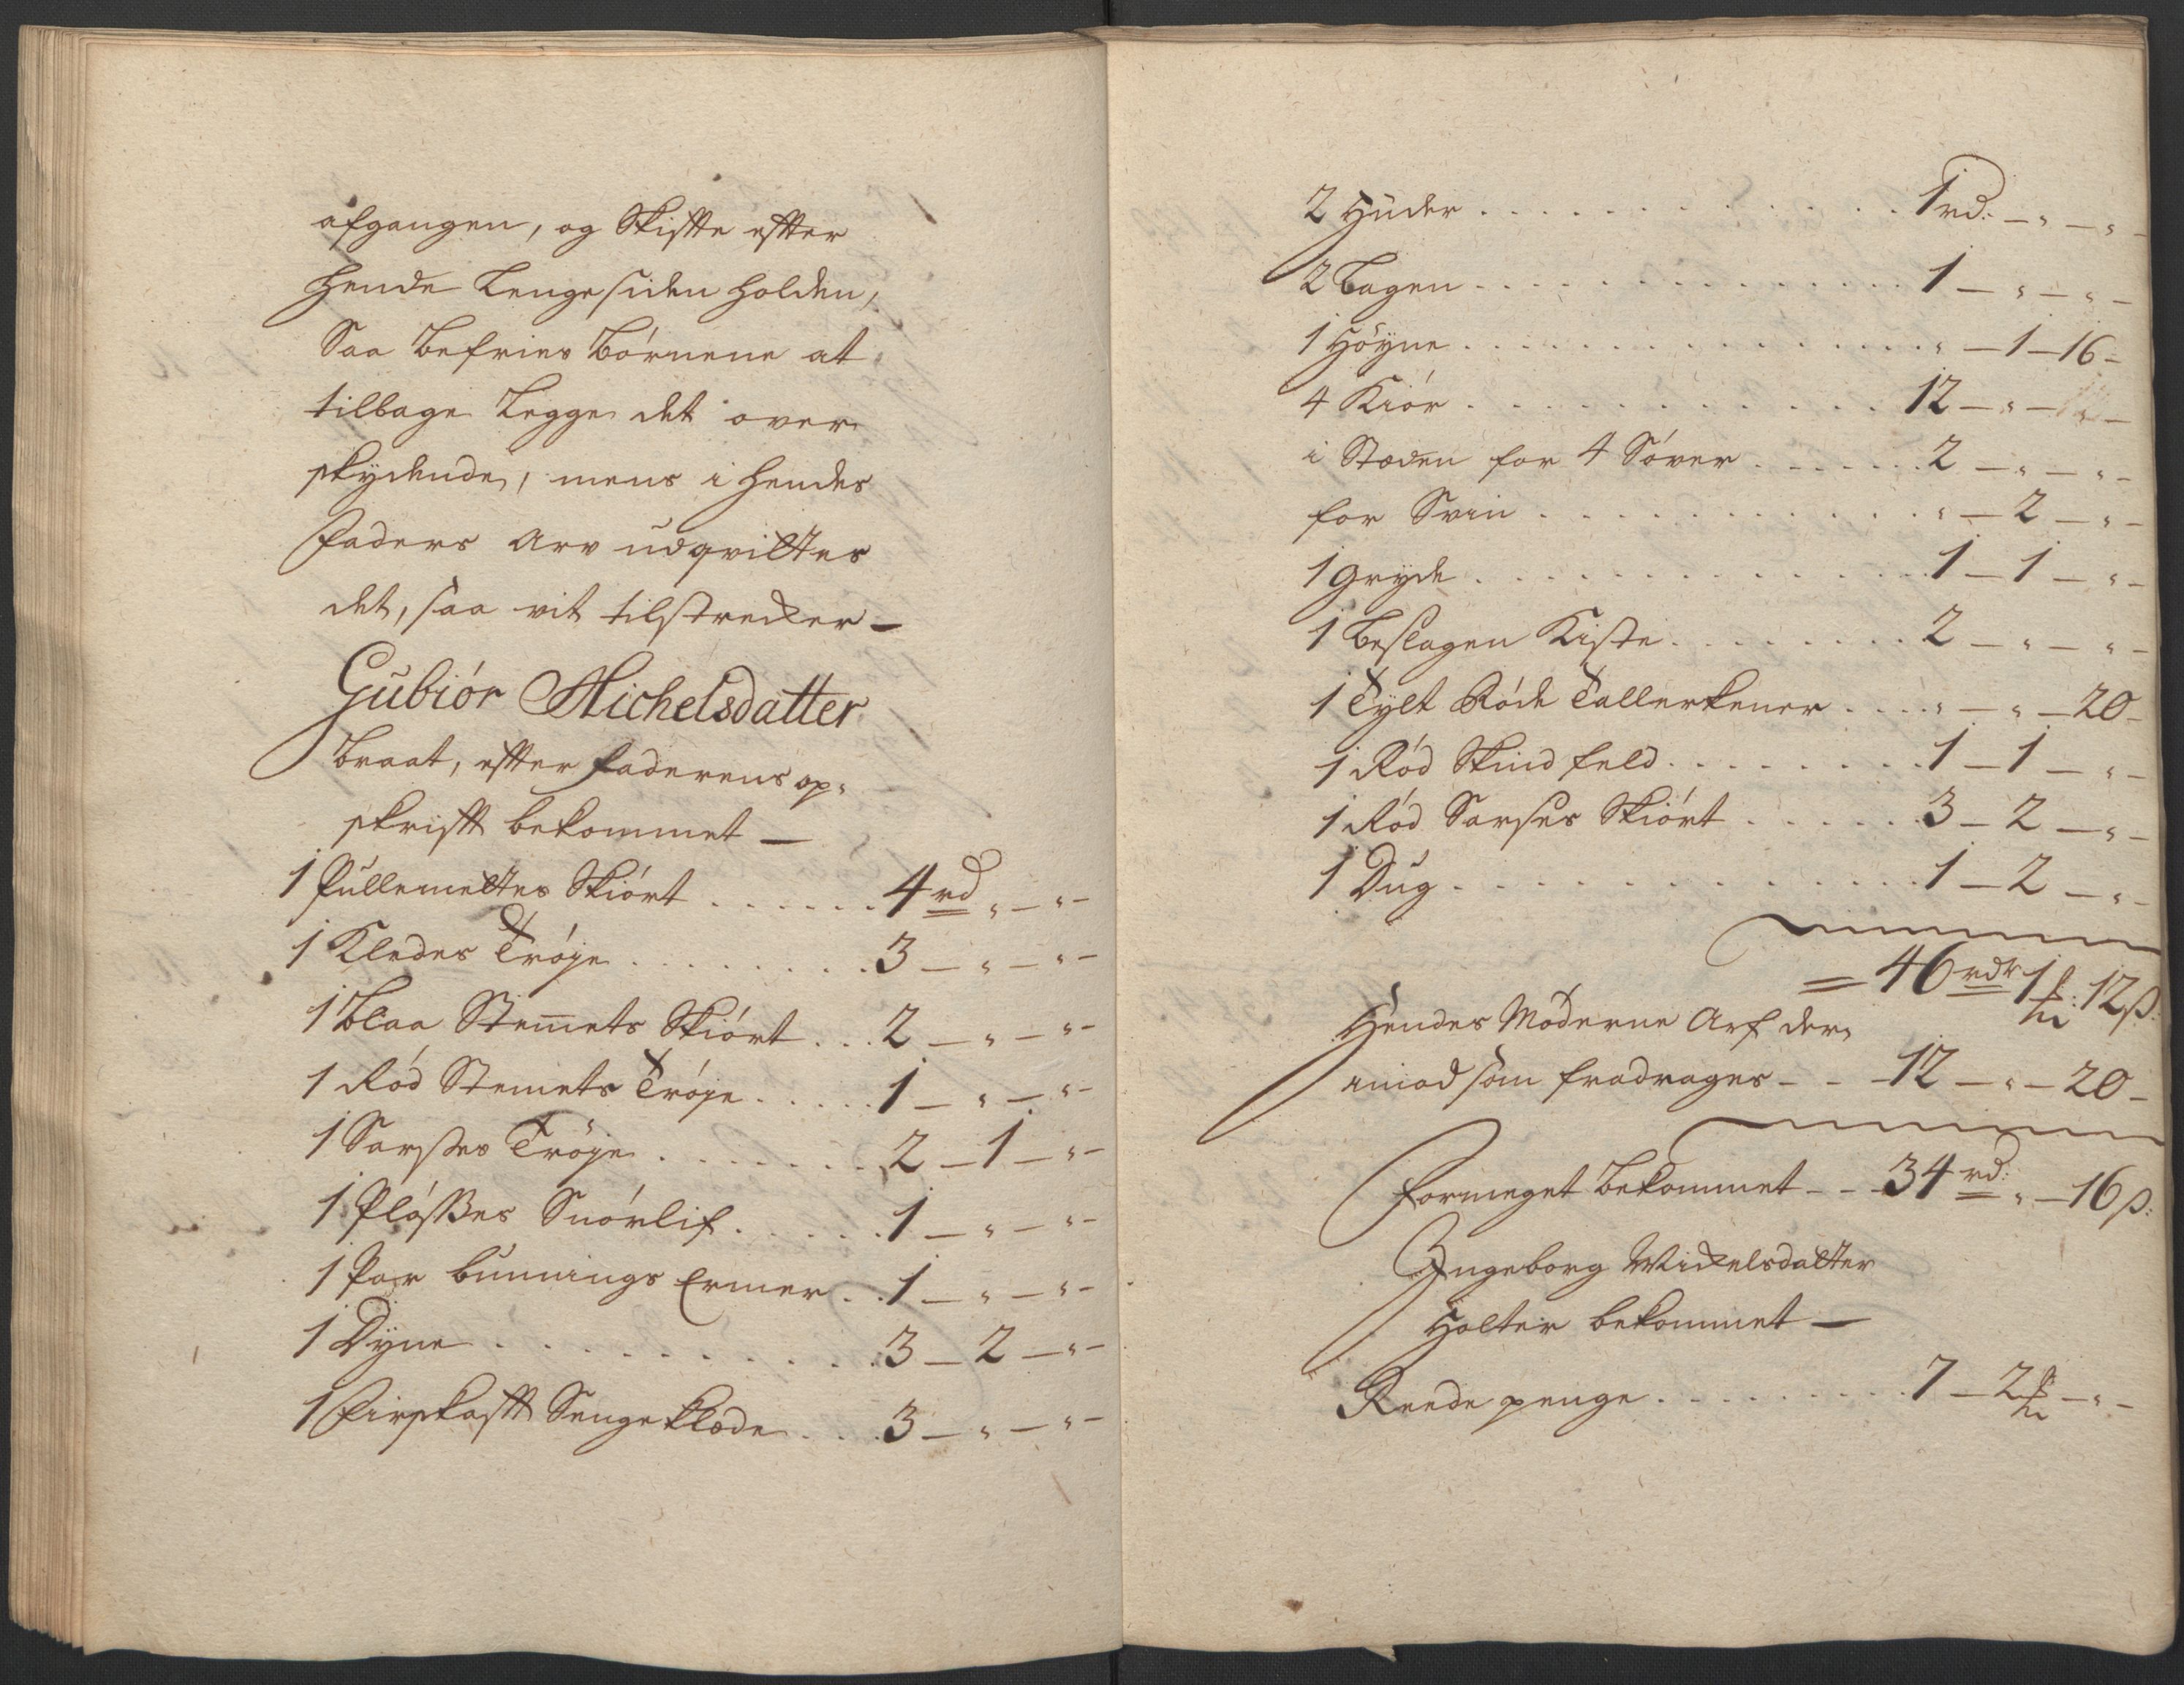 afgangen, og Skiftte eftter
hende Lenge siden holden,
Saa befries Børnene at
tilbage Legge det over
skydende, mens i hendes
Faders Arv udqvilttes
det, saa vit tilstrecker —
Gubiór Michelsdatter
Braat, eftter Faderens op-
skriftt bekommet —
1 Fullemeltes Skiórt . . . . . . 4 rd „ — „ —
1 Kledes Tróje . . . . . . . . 3 — „ — „ —
1 blaa Stem̅ets Skiórt . . . 2 — „ — „ —
1 Ród Stemets Tróje . . . . . 1 — „ — „ —
1 Sarsses Tröje . . . . . . . 2 — 1 — „ —
1 Plóssses Snórlif . . . . . . 1 — „ — „ —
1 Par bunnings Ermer . . 1 — „ — „ —
1 Dyne . . . . . . . . . . . 3 — 2 — „ —
1 Firskaftt Senge klæde . . . 3 — „ — „ —
2 Huder . . . . . . . . . . . . 1 rd. — „ — „ —
2 Lagen . . . . . . . . . . . . 1 — „ — „ —
1 Höyne . . . . . . . . . . . . „ — 1 — 16 —
4 Kiór . . . . . . . . . . . . 12 — „ — „ —
i Stæden for 4 Sóver . . . . . . 2 — „ — „ —
for Svin . . . . . . . . . . . „ — 2 — „ —
1 Gryde . . . . . . . . . . . . 1 — 1 — „ —
1 beslagen Kiste . . . . . . . . 2 — „ — „ —
1 Tylt Róde Tallerkener . . . . „ — „ — 20 —
1 Ród Skind feld . . . . . . . . 1 — 1 — „ —
1 Ród Sarses Skiórt . . . . . . 3 — 2 — „ —
1 Dug . . . . . . . . . . . . . 1 — 2 — „ —
= 46 rdr 1 ₶: 12 ß.
Hendes Móderne Arf der-
imod som fradrages - - - 12 — „ — 20 —
Formeget bekommet - - - 34 rd: „ — 16 ß.
Ingeborg Mickelsdatter
Holter bekommet —
Reede penge . . . . . . . . . 7 — 2 ₶ — „ —